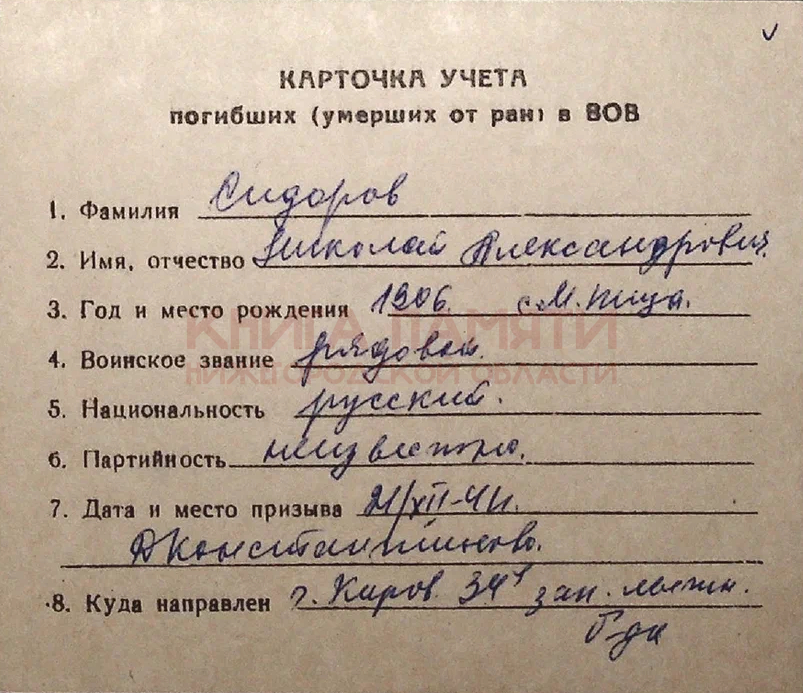 КАРТОЧКА УЧЕТА
погибших (умерших от ран) в ВОВ
1. Фамилия Сидоров
2. Имя, отчество Николай Александрович.
3. Год и место рождения 1906. с. М. Пица.
КНИГА ПАМЯТИ
4. Воинское звание рядовой.
НИЖЕГОРОДСКОЙ ОБЛАСТИ
5. Национальность русский.
6. Партийность неизвестно.
7. Дата и место призыва 21/XII-41г.
Д Константиново.
8. Куда направлен г. Киров. 34 зап. лыжн.
б-да